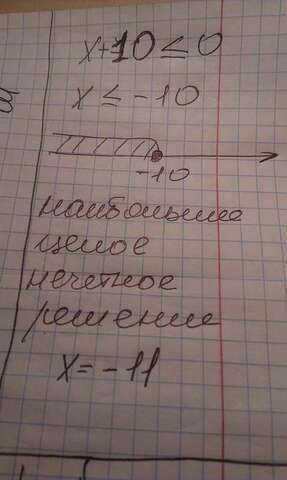 x+10≤0
x≤-10
-10
наибольшее
целое
нечетное
решение
x=-11